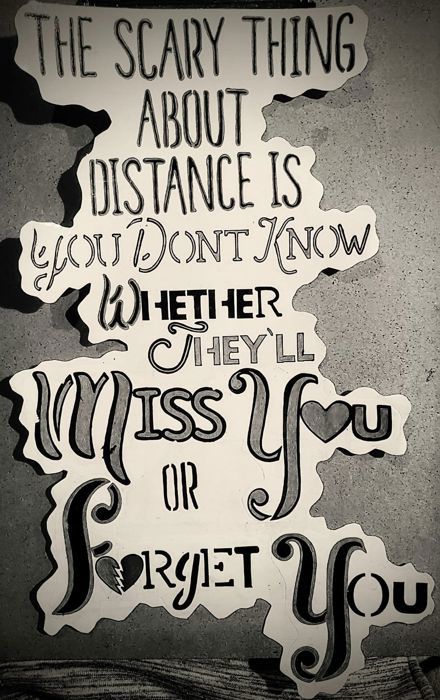 THE SCARY THING
ABOUT
DISTANCE IS
YOU DONT KNOW
WHETHER
THEY'LL
MISS YOU
OR
FORGET YOU